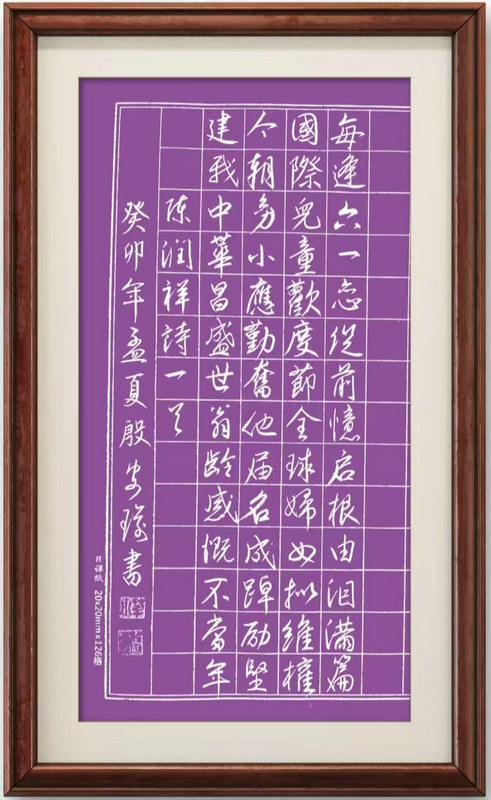 每逢六一忘從前憶启根由泪滿篇
國際兒童歡度節全球婦女拟維權
今朝幼小應勤奮他届名成踔励堅
建我中華昌盛世翁龄感慨不當年
陈润祥詩一首
癸卯年孟夏殷書
日课纸 20x20mmx126格